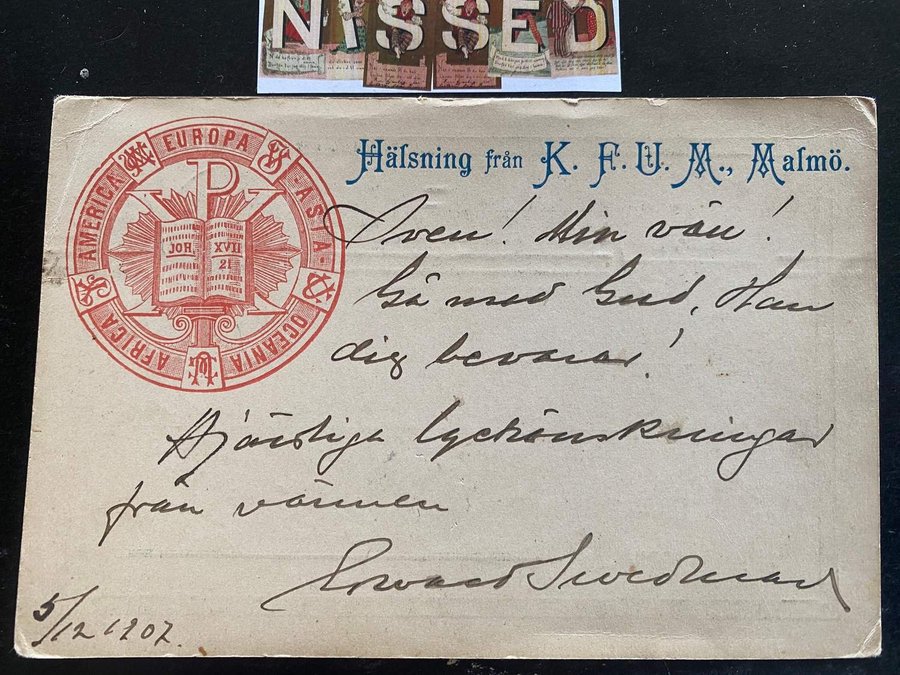 NISSED
EUROPA
ASIA
OCEANIA
AFRICA
AMERICA
P
JOH. XVII
21
Hälsning från K. F. U. M., Malmö.
Sven! Min vän!
Gå med Gud, Han
dig bevarar!
Hjärtliga lyckönskningar
från vännen
Edward
5/12 1907.